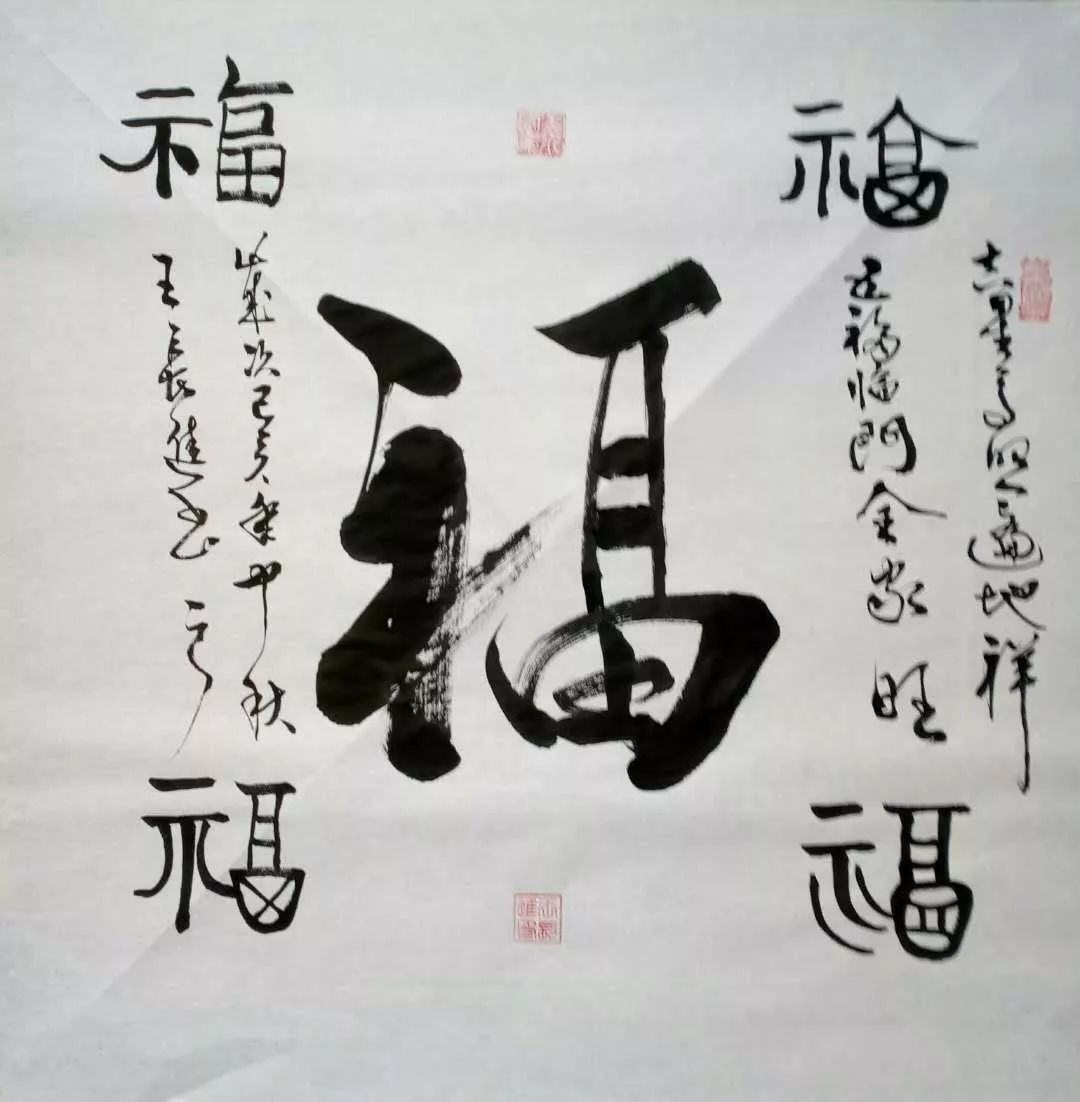 福
福
福
福
福
吉星高照遍地祥
五福临門全家旺
歲次己亥年中秋
王長進书